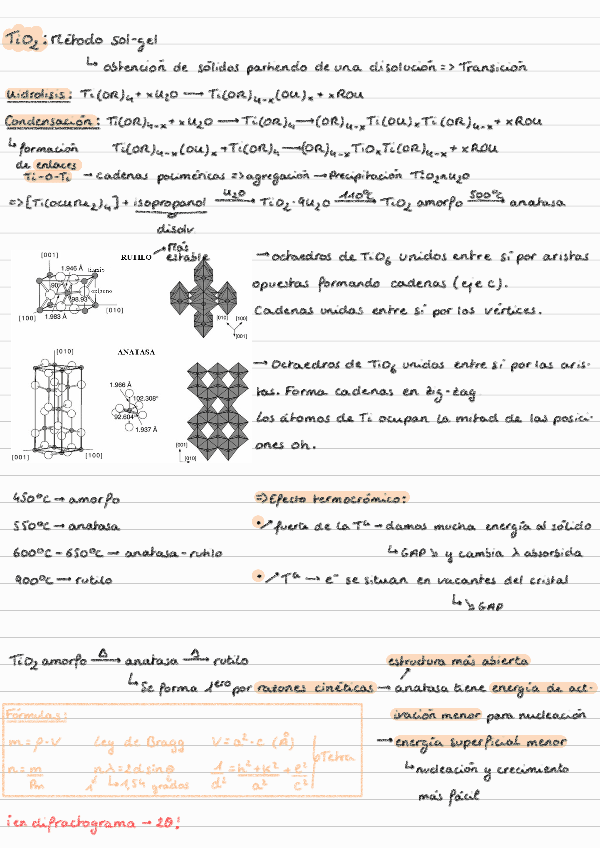 TiO₂: Método Sol-gel
↳ obtención de sólidos partiendo de una disolución => Transición
Hidrólisis: Ti(OR)₄ + xH₂O → Ti(OR)₄₋ₓ(OH)ₓ + xROH
Condensación: Ti(OR)₄₋ₓ + xH₂O → Ti(OR)₄ → (OR)₄₋ₓTi(OH)ₓTi(OR)₄₋ₓ + xROH
↳ formación de enlaces Ti-O-Ti
Ti(OR)₄₋ₓ(OH)ₓ + Ti(OR)₄ → (OR)₄₋ₓTiOₓTi(OR)₄₋ₓ + xROH
→ cadenas poliméricas => agregación → Precipitación TiO₂nH₂O
=> [Ti(OCHMe₂)₄] + isopropanol H₂O → TiO₂·9H₂O 110ºC → TiO₂ amorfo 500ºC → anatasa
disolv
Más estable
[001] RUTILO
1.946 Å titanio
90º oxígeno
98.93º
[100] 1.983 Å [010]
[010] [100]
[001]
→ octaedros de TiO₆ unidos entre sí por aristas
opuestas formando cadenas (eje c).
Cadenas unidas entre sí por los vértices.
[010] ANATASA
1.966 Å
102.308º
92.604º
1.937 Å
[001] [100]
[001]
[010]
→ Octaedros de TiO₆ unidos entre sí por las aris-
tas. Forma cadenas en zig-zag
Los átomos de Ti ocupan la mitad de las posici-
ones Oh.
450ºC → amorfo
550ºC → anatasa
600ºC - 650ºC → anatasa-rutilo
900ºC → rutilo
=> Efecto termocrómico:
• ↗ fuerte de la Tª → damos mucha energía al sólido
↳ GAP ↘ y cambia λ absorbida
• ↗ Tª → e⁻ se sitúan en vacantes del cristal
↳ ↘ GAP
TiO₂ amorfo Δ → anatasa Δ → rutilo
↳ Se forma 1ero por razones cinéticas → anatasa tiene energía de act-
estructura más abierta
ivación menor para nucleación
→ energía superficial menor
↳ nucleación y crecimiento
más fácil
Fórmulas:
m = ρ·V Ley de Bragg V = a²·c (Å)
n = m/Pm nλ = 2d sinθ 1/d² = h²+k²/a² + l²/c² Tetra
1 ↳ 1,54 grados
¡en difractograma → 2θ!